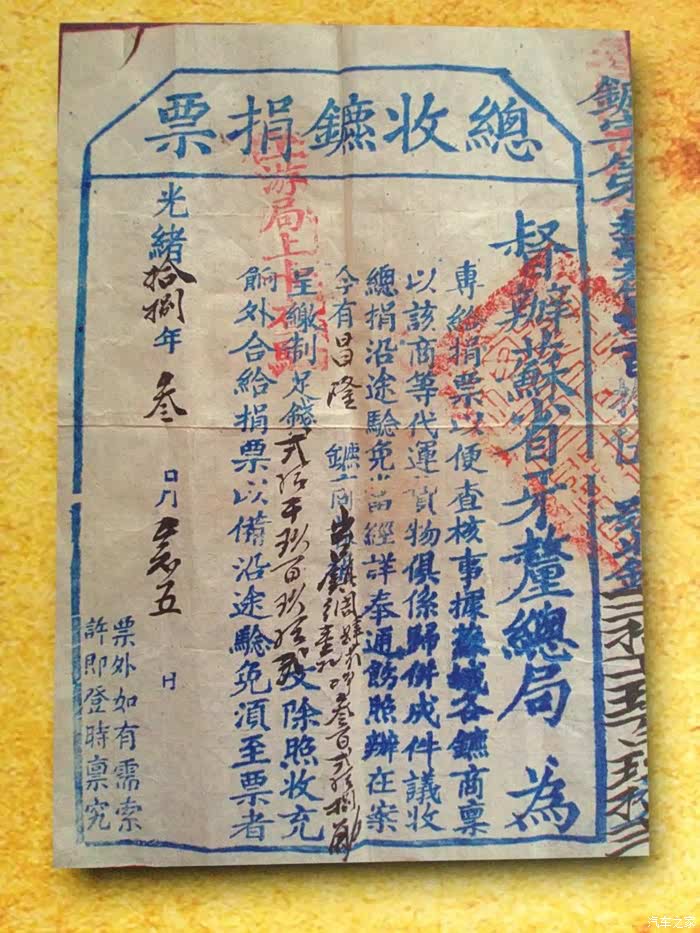 總收鑣捐票
鑣字第
督辦蘇省牙釐總局 為
專給捐票以便查核事據蘇城各鑣商稟
以該商等代運貨物俱係歸併成件議收
總捐沿途驗免當經詳奉通飭照辦在案
今有昌隆 鑣商 叁百弍拾捌觔
呈繳制足錢弍拾千玖百玖拾弍文除照收充
餉外合給捐票以備沿途驗免須至票者
光緒拾捌年 叁 月 五 日
票外如有需索
許即登時稟究
游局上卡
汽车之家